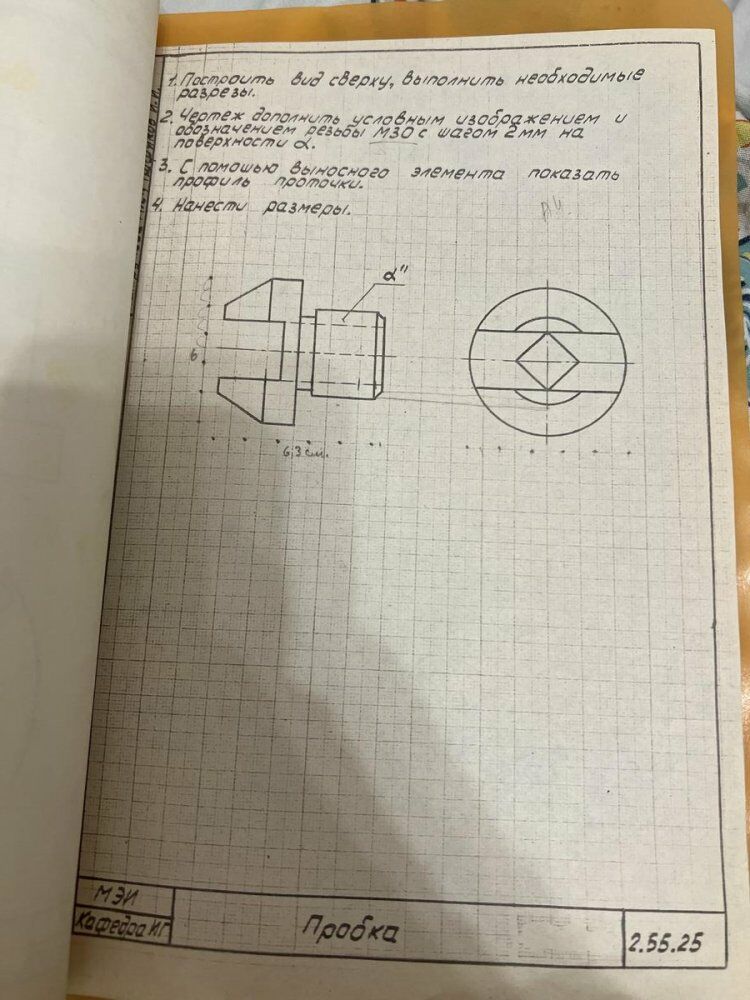 1. Построить вид сверху, выполнить необходимые
разрезы.
2. Чертеж дополнить условным изображением и
обозначением резьбы М30 с шагом 2мм на
поверхности α.
3. С помошью выносного элемента показать
профиль проточки.
4. Нанести размеры.
А4.
α"
6
6,3 см.
МЭИ
Кафедра ИГ
Пробка
2.55.25